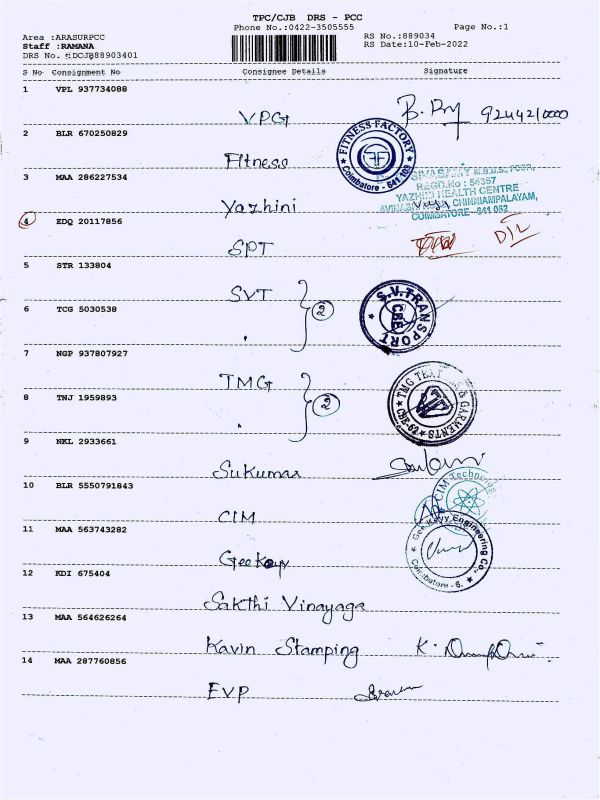 TPC/CJB DRS - PCC
Phone No.:0422-3505555 Page No.:1
Area :ARASURPCC RS No.:889034
Staff :RAMANA RS Date:10-Feb-2022
DRS No. :DCJB88903401
S No Consignment No Consignee Details Signature
1 VPL 937734088
VPG 9244210000
2 BLR 670250829
FITNESS FACTORY
Coimbatore - 641 103
Fitness
3 MAA 286227534
M.B.B.S.,
REGD.No : 56357
YAZHINI HEALTH CENTRE
CHINNIAMPALAYAM,
COIMBATORE - 641 062
Yazhini
4 EDQ 20117856
SPT D/L
5 STR 133804
SVT
S.V.TRANSPORT
CBE
2
6 TCG 5030538
7 NGP 937807927
TMG
TMG & GARMENTS
2
8 TNJ 1959893
9 NKL 2933661
Sukumar
10 BLR 5550791843
CIM
CIM
11 MAA 563743282
Gee Kayy Engineering Co.,
Coimbatore - 5.
Geekayy
12 KDI 675404
Sakthi Vinayaga
13 MAA 564626264
Kavin Stamping
14 MAA 287760856
EVP